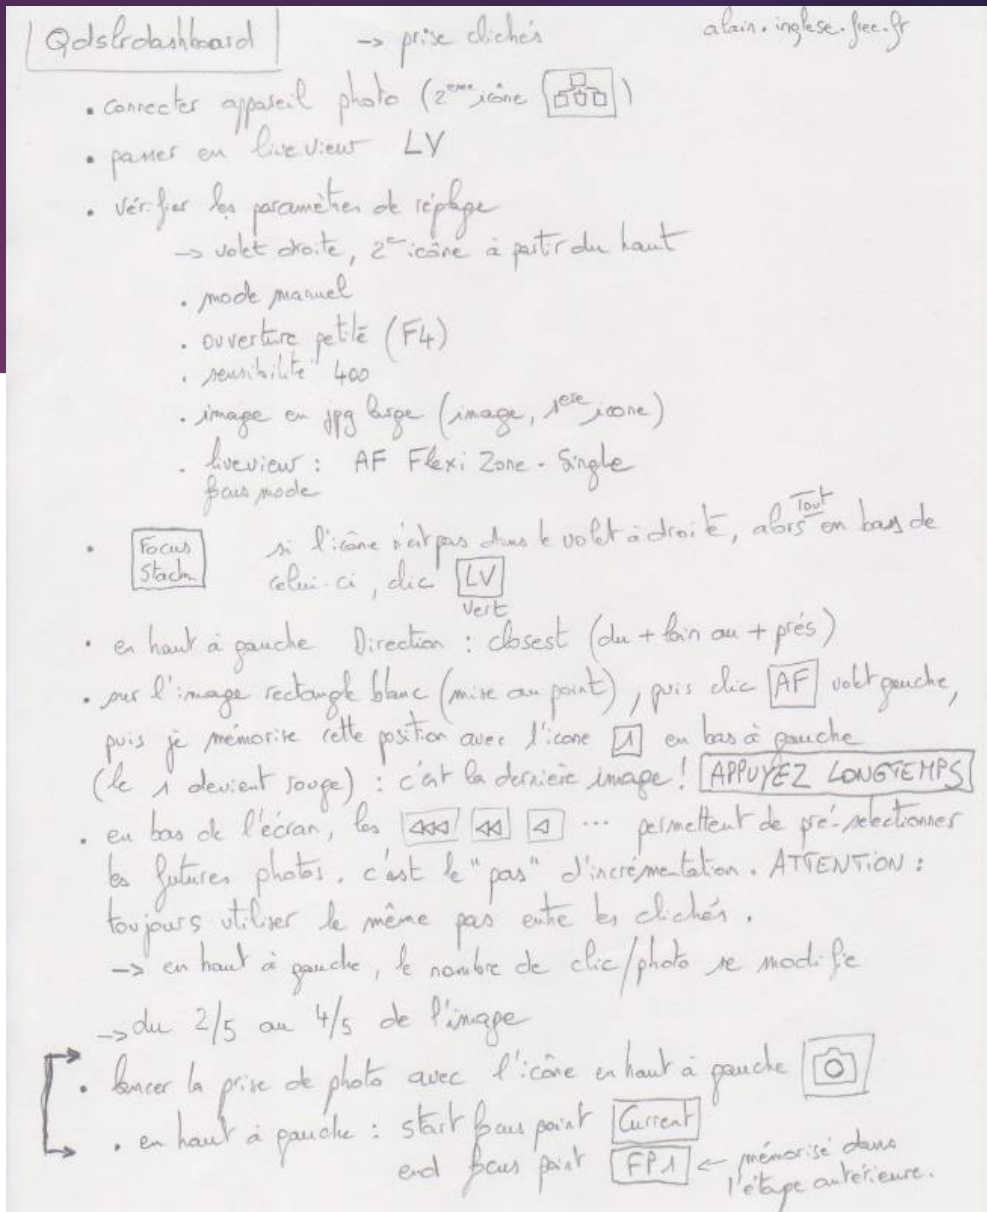 Qdslrdashboard -> prise clichés alain.inglese.free.fr
• connecter appareil photo (2eme icône )
• passer en live view LV
• vérifier les paramètres de réglage
-> volet droite, 2e icône à partir du haut
. mode manuel
. ouverture petite (F4)
. sensibilité 400
. image en jpg large (image, 1ere icone)
. liveview : AF Flexi Zone - Single
focus mode
• Focus si l'icône n'est pas dans le volet à droite, alors Tout en bas de
Stackn celui-ci, clic LV
vert
• en haut à gauche Direction : closest (du + loin au + près)
• sur l'image rectangle blanc (mise au point), puis clic AF volet gauche,
puis je mémorise cette position avec l'icone 1 en bas à gauche
(le 1 devient rouge) : c'est la dernière image ! APPUYEZ LONGTEMPS
• en bas de l'écran, les ... permettent de pré-sélectionner
les futures photos. c'est le "pas" d'incrémentation. ATTENTION :
toujours utiliser le même pas entre les clichés.
-> en haut à gauche, le nombre de clic/photo se modifie
-> du 2/5 au 4/5 de l'image
• lancer la prise de photo avec l'icône en haut à gauche
• en haut à gauche : start focus point Current
end focus point FP1 <- mémorisé dans
l'étape antérieure.